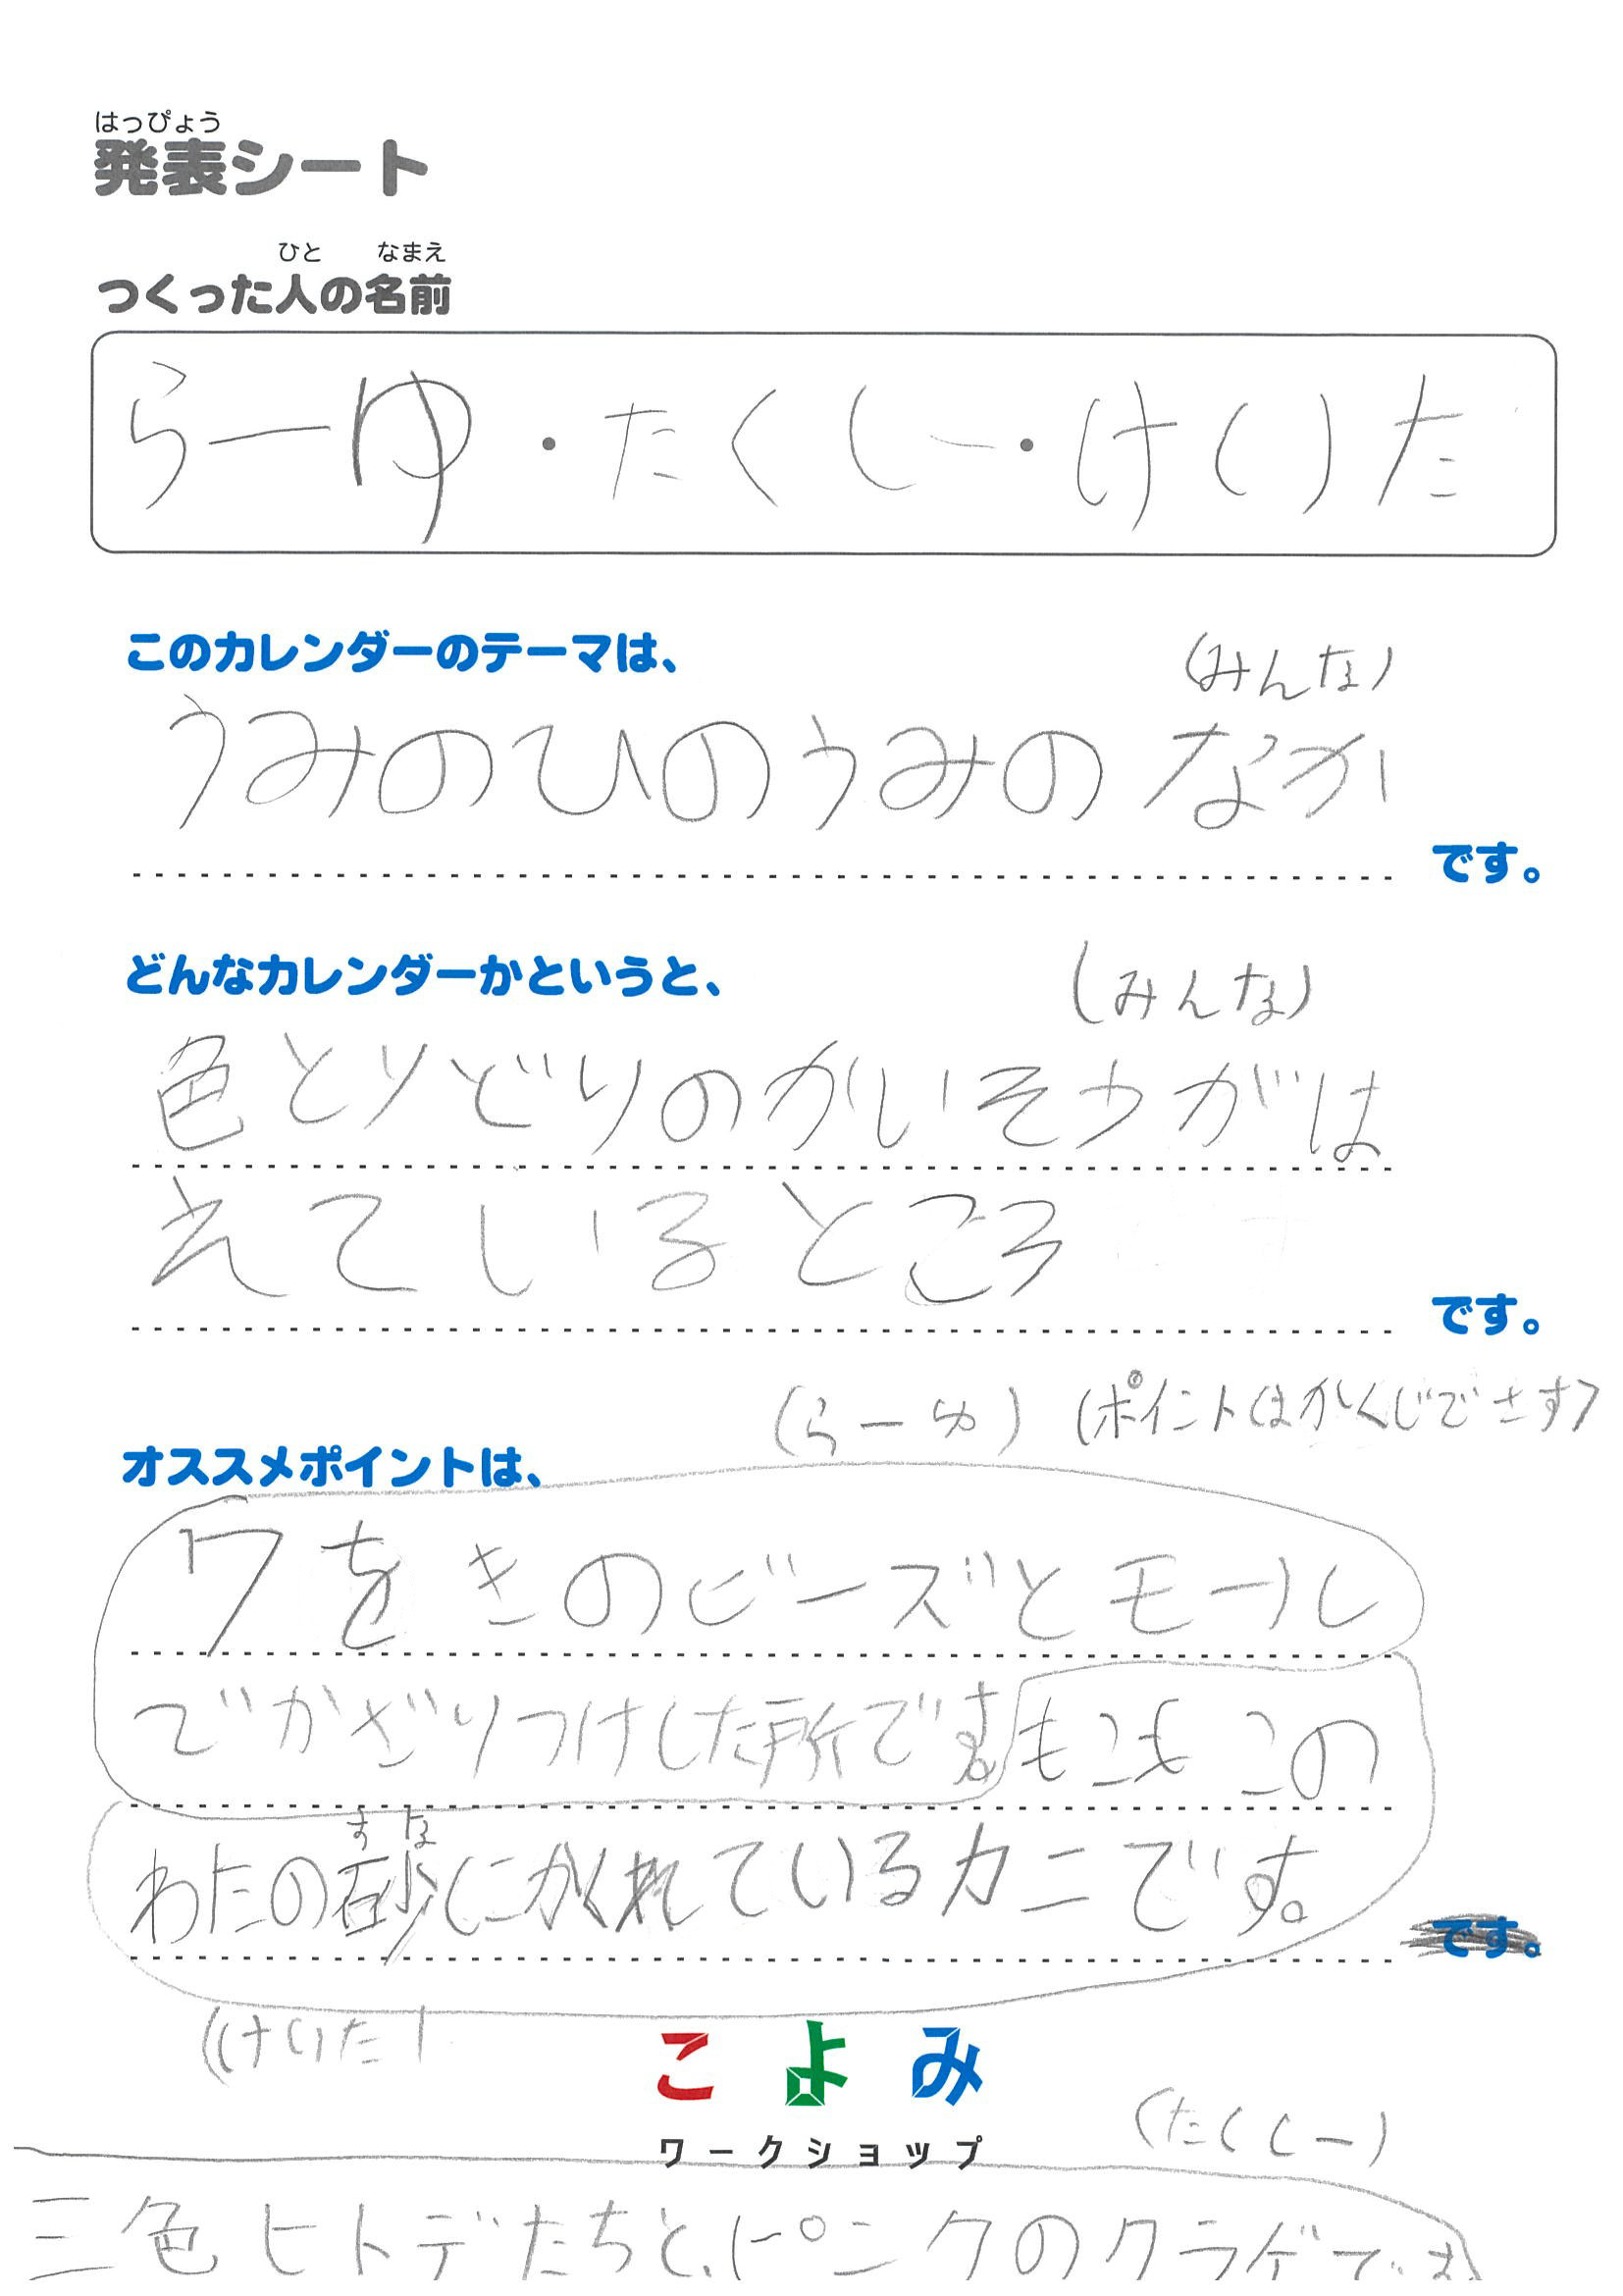 はっぴょう
発表シート
ひと なまえ
つくった人の名前
らーゆ・たくしー・けいた
このカレンダーのテーマは、
(みんな)
うみのひのうみのなか
です。
どんなカレンダーかというと、
(みんな)
色とりどりのかいそうがは
えているところ
です。
(らーゆ) (ポイントはかくじでさす)
オススメポイントは、
7をきのビーズとモール
でかざりつけした所です。もこもこの
すな
わたの砂にかくれているカニです。
です。
(けいた)
こよみ
(たくしー)
ワークショップ
三色ヒトデたちと、ピンクのクラゲです